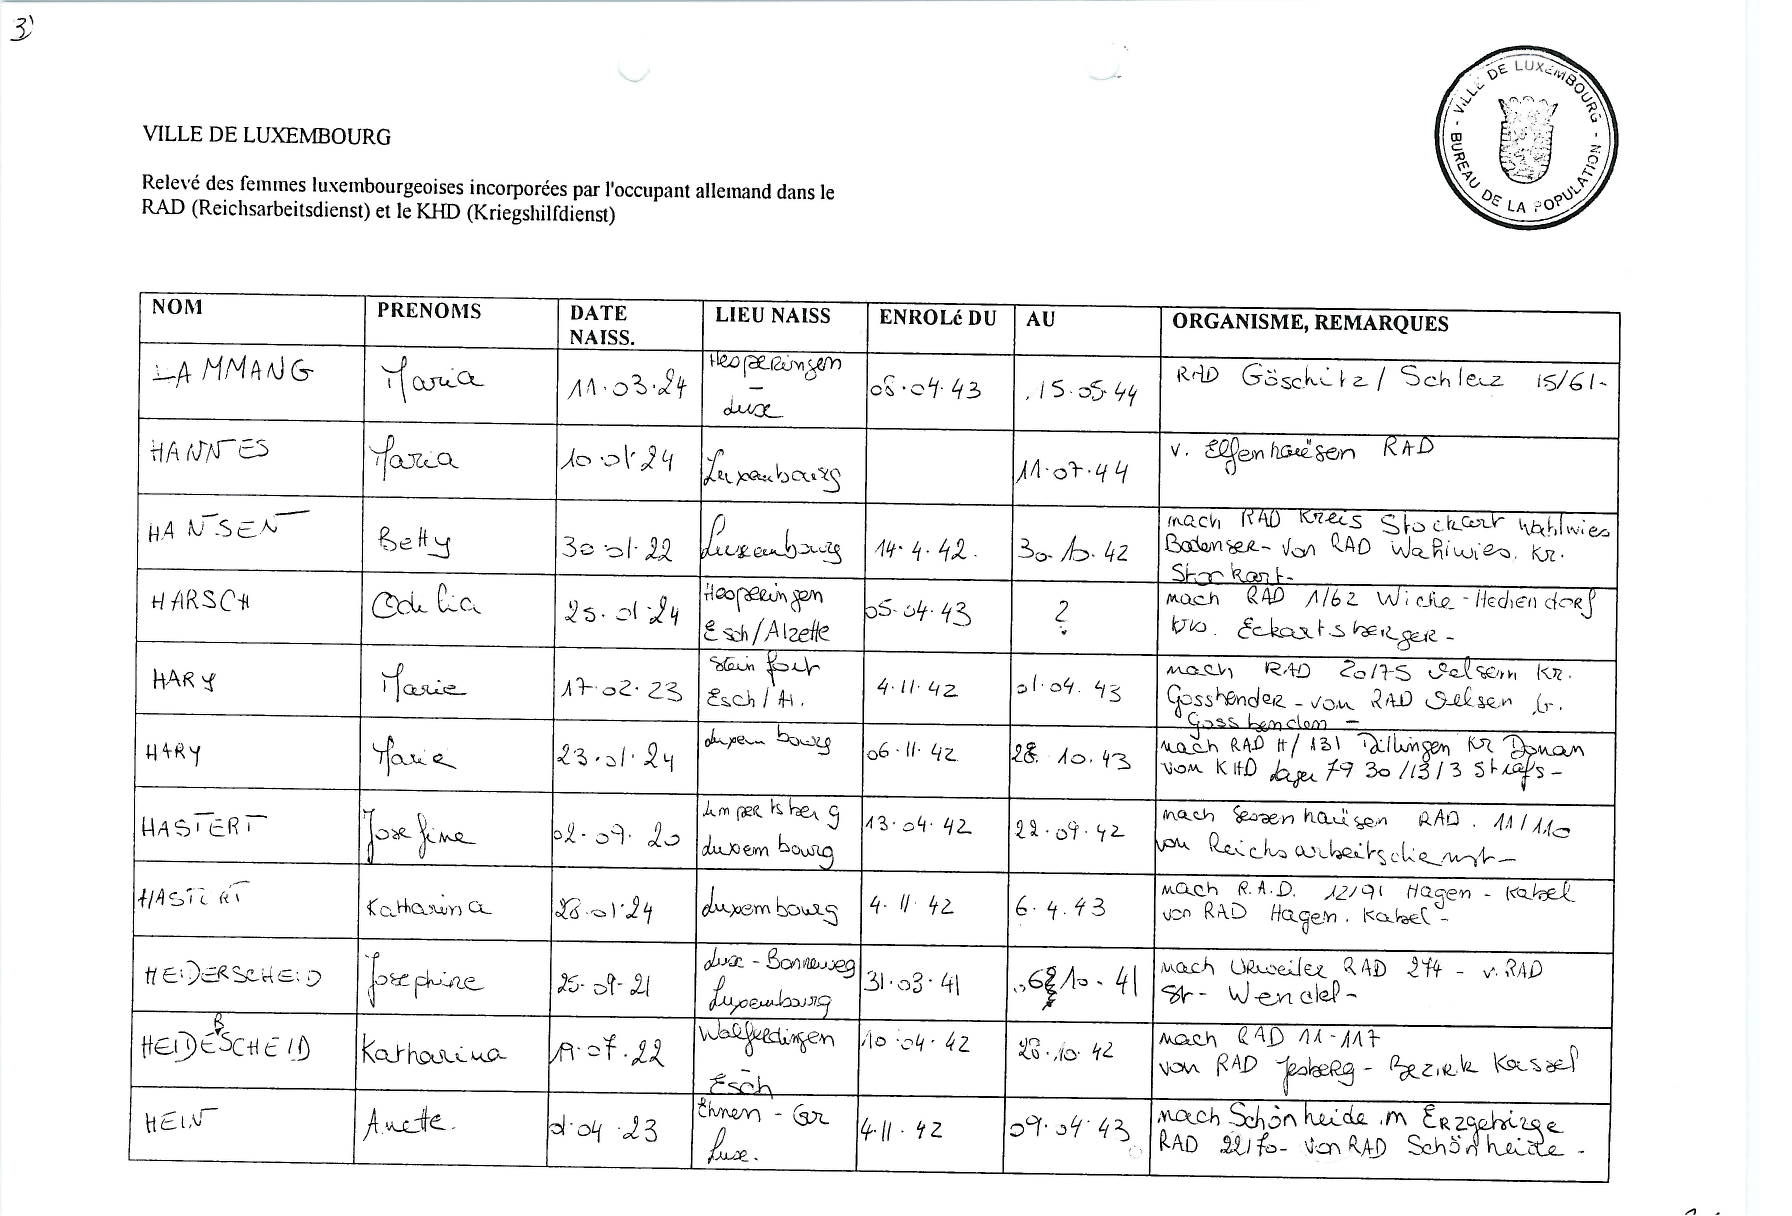 3)
VILLE DE LUXEMBOURG
· VILLE DE LUXEMBOURG · BUREAU DE LA POPULATION
Relevé des femmes luxembourgeoises incorporées par l'occupant allemand dans le
RAD (Reichsarbeitsdienst) et le KHD (Kriegshilfdienst)
NOM PRENOMS DATE NAISS. LIEU NAISS ENROLé DU AU ORGANISME, REMARQUES
LAMMANG Maria 11.03.24 Hesperingen - Luxe 08.04.43 15.05.44 RAD Göschitz / Schleiz 15/61-
HANNES Maria 10.01.24 Luxembourg 11.07.44 v. Elfenhaüsen RAD
HANSEN Betty 30.01.22 Luxembourg 14.4.42. 30.10.42 nach RAD Kreis Stockart Wahlwies
Bodenser- von RAD Wahlwies. Kr.
Stockart-
HARSCH Odilia 25.01.24 Hesperingen Esch/Alzette 05.04.43 ? nach RAD 1/62 Wiche-Hechendorf
Eckartsberger-
HARY Marie 17.02.23 Steinfort Esch/Al. 4.11.42 01.04.43 nach RAD 20/75 Kr.
Gosshender - von RAD
Gosshenden -
HARY Marie 23.01.24 Luxembourg 06.11.42 28.10.43 nach RAD H/131 Dillingen Kr Donan
vom KHD Lager 79 30/13/3 Strafs-
HASTERT Josefine 02.09.20 Limpertsberg Luxembourg 13.04.42 22.09.42 nach Sessenhaüsen RAD. 11/110
von Reichsarbeitsdienst-
HASTERT Katharina 28.01.24 Luxembourg 4.11.42 6.4.43 nach R.A.D. 12/91 Hagen - Kabel
von RAD Hagen. Kabel-
HEIDERSCHEID Josephine 25.09.21 Luxe - Bonneweg Luxembourg 31.03.41 10.41 nach Urweiler RAD 274 - v. RAD
St- Wendel-
HEIDERSCHEID Katharina 19.07.22 Walferdingen - Esch 10.04.42 28.10.42 nach RAD 11-117
von RAD Jesberg - Bezirk Kassel
HEIN Anette. 01.04.23 Ehnen - Gr Luxe. 4.11.42 09.04.43 nach Schönheide im Erzgebirge
RAD 22/70- von RAD Schönheide -